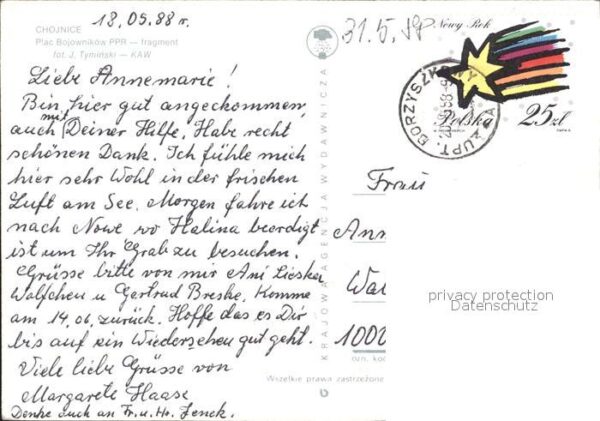 18.05.88 r.
CHOJNICE
Plac Bojowników PPR — fragment
fot. J. Tymiński — KAW
31.5.88
Nowy Rok
Polska 25 zł
BORZYSZKOWY
Liebe Annemarie!
Bin hier gut angeckommen,
auch mit Deiner Hilfe. Habe recht
schönen Dank. Ich fühle mich
hier sehr Wohl in der frischen
Luft am See. Morgen fahre ich
nach Nowe wo Halina beerdigt
ist um Ihr Grab zu besuchen.
Grüsse bitte von mir Ani Lieske
Wölfchen u Gertrud Breske. Komme
am 14.06. zurück. Hoffe das es Dir
bis auf ein Wiedersehen gut geht.
Viele liebe Grüsse von
Margarete Haase
Denke auch an Fr. u. Hr. Jenck.
KRAJOWA AGENCJA WYDAWNICZA
Wszelkie prawa zastrzeżone
Frau
Ann
War
1000
privacy protection
Datenschutz